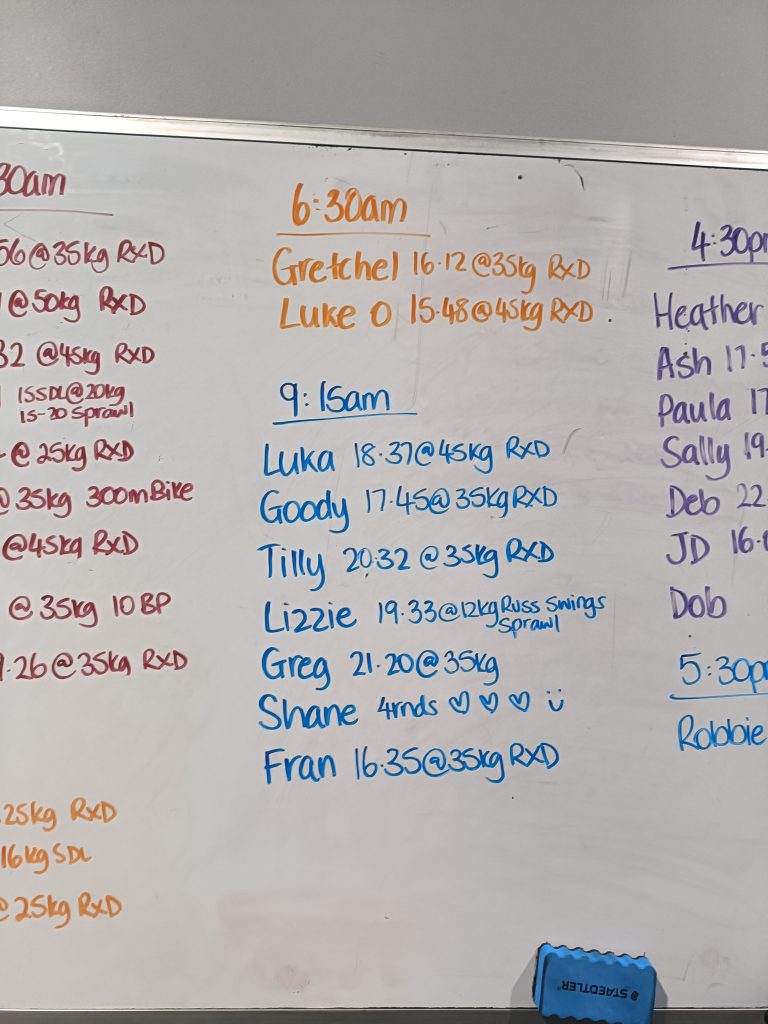 30am
56@35kg RXD
@50kg RXD
32 @45kg RXD
15SDL@20kg
15-20 Sprawl
@ 25kg RXD
@35kg 300m Bike
@45kg RXD
@ 35kg 10 BP
9.26@35kg RXD
25kg RXD
16kg SDL
@ 25kg RXD
6:30am
Gretchel 16.12@35kg RXD
Luke O 15.48@45kg RXD.
9:15am
Luka 18.37@45kg RXD
Goody 17.45@35kg RXD
Tilly 20.32 @35kg RXD
Lizzie 19.33@12kg Russ Swings
Sprawl
Greg 21.20@35kg
Shane 4rnds ♡ ♡ ♡ ü
Fran 16.35@35kg RXD
4:30pm
Heather
Ash 17.5
Paula 17
Sally 19.
Deb 22.
JD 16.0
Dob
5:30pm
Robbie
STAEDTLER